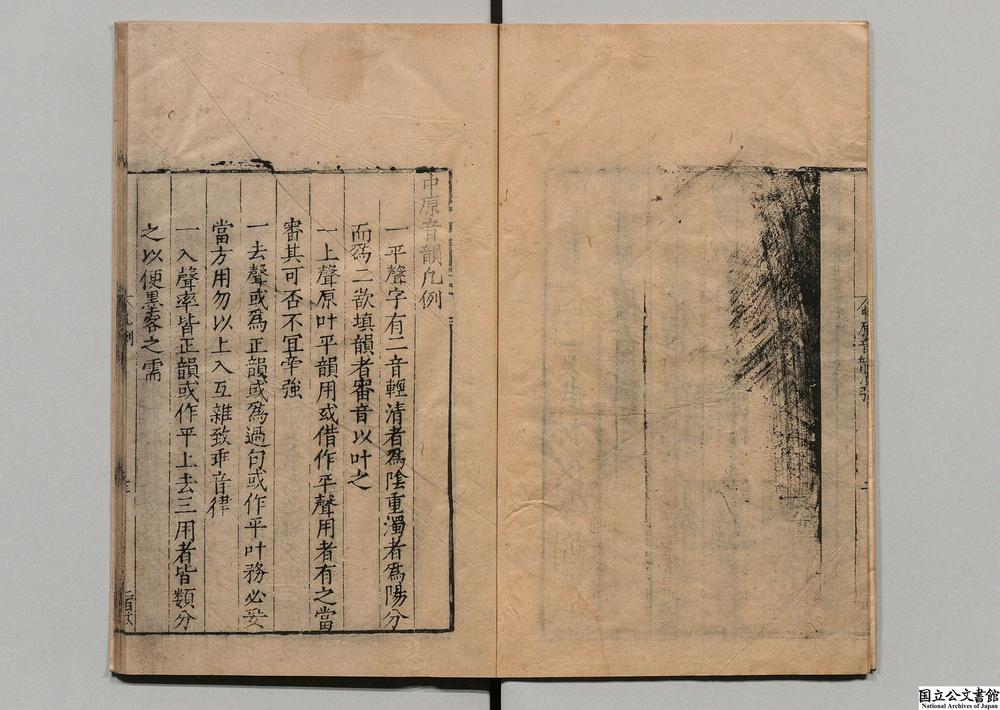 中原音韻凡例
一平聲字有二音輕清者爲陰重濁者爲陽分
而爲二欲填韻者審音以叶之
一上聲原叶平韻用或借作平聲用者有之當
審其可否不宜牽強
一去聲或爲正韻或爲過句或作平叶務必妥
當方用勿以上入互雜致乖音律
一入聲率皆正韻或作平上去三用者皆類分
之以便黑客之需
国立公文書館
National Archives of Japan